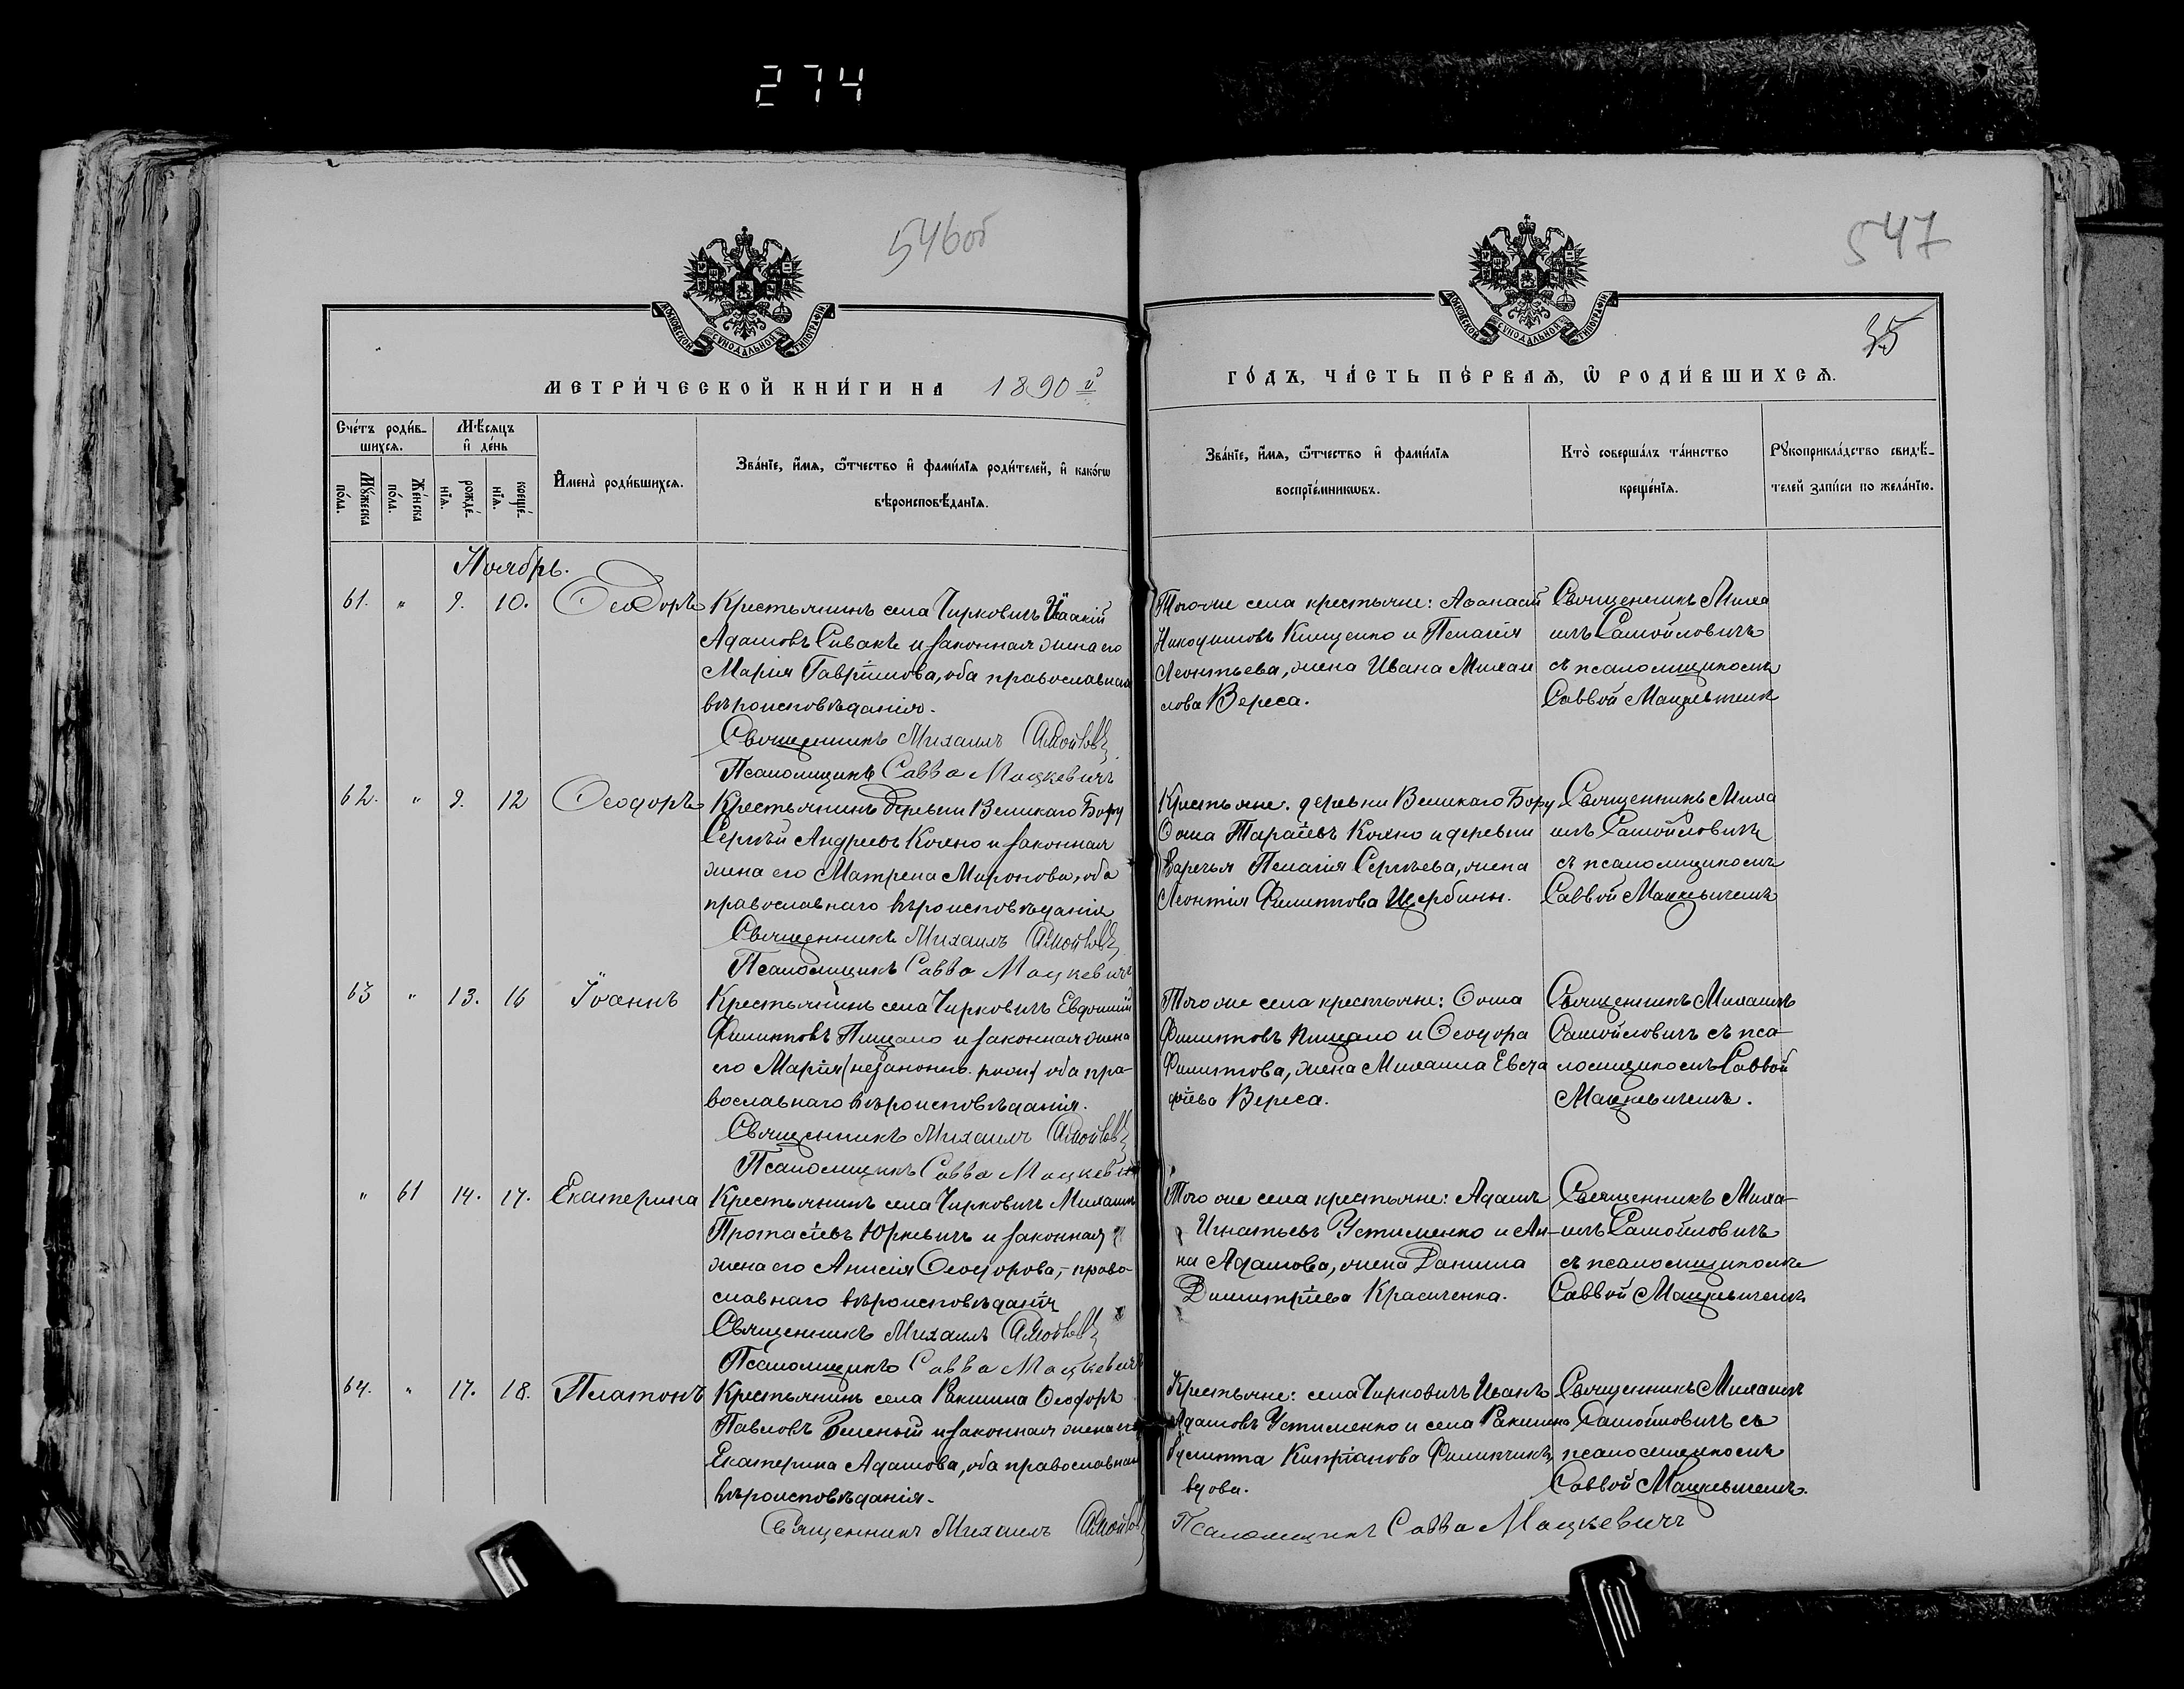 274
546об
547
35
МОСКОВСКОЙ СУНОДАЛЬНОЙ ТИПОГРАФІИ
МОСКОВСКОЙ СУНОДАЛЬНОЙ ТИПОГРАФІИ
МЕТРИ́ЧЕСКОЙ КНИ́ГИ НА 1890й
ГО́ДЪ, ЧА́СТЬ ПЕ́РВАЯ, Ѡ҆ РОДИ́ВШИХСЯ.
Сче́тъ роди́в-
шихсѧ.
Мѣ́сяцъ
и҆ де́нь
Мꙋ́жеска
по́ла.
Же́нска
по́ла.
рожде́-
нїѧ.
креще́-
нїѧ.
И҆мена̀ роди́вшихсѧ.
Зва́нїе, и҆́мѧ, ѻ҆́тчество и҆ фами́лїѧ роди́телей, и҆ како́гѡ
вѣроисповѣ́данїѧ.
Зва́нїе, и҆́мѧ, ѻ҆́тчество и҆ фами́лїѧ
воспрїе́мникѡвъ.
Кто̀ соверша́лъ та́инство
креще́нїѧ.
Рꙋкоприкла́дство свидѣ́-
телей за́писи по жела́нїю.
Ноябрь.
61. " 9. 10. Ѳеодоръ
Крестьянинъ села Чирковичъ Исаакій
Адамовъ Сивакъ и законная жена его
Марія Гавріилова, оба православнаго
вѣроисповѣданія.
Священникъ Михаилъ Самойловичъ
Псаломщикъ Савва Мацкевичъ
Того же села крестьяне: Аѳанасій
Никодимовъ Кищенко и Пелагія
Леонтьева, жена Ивана Михаи
лова Вереса.
Священникъ Миха
илъ Самойловичъ
съ псаломщикомъ
Саввой Мацкевичемъ
62. " 9. 12 Ѳеодоръ
Крестьянинъ деревни Великаго Бору
Сергѣй Андреевъ Кохно и законная
жена его Матрена Миронова, оба
православнаго вѣроисповѣданія
Священникъ Михаилъ Самойловичъ
Псаломщикъ Савва Мацкевичъ
Крестьяне: деревни Великаго Бору
Ѳома Тарасіевъ Кохно и деревни
Заречья Пелагія Сергѣева, жена
Леонтія Филиппова Щербины.
Священникъ Миха
илъ Самойловичъ
съ псаломщикомъ
Саввой Мацкевичемъ
63 " 13. 16 Іоаннъ
Крестьянинъ села Чирковичъ Евдокимій
Филипповъ Пищало и законная жена
его Марія (незаконно рожд) оба пра-
вославнаго вѣроисповѣданія.
Священникъ Михаилъ Самойловичъ
Псаломщикъ Савва Мацкевичъ
Того же села крестьяне: Ѳома
Филипповъ Пищало и Ѳеодора
Филиппова, жена Михаила Евста
фіева Вереса.
Священникъ Михаилъ
Самойловичъ съ пса-
ломщикомъ Саввой
Мацкевичемъ.
" 61 14. 17. Екатерина
Крестьянинъ села Чирковичъ Михаилъ
Протасіевъ Юркевичъ и законная
жена его Анисія Ѳеодорова, право-
славнаго вѣроисповѣданія
Священникъ Михаилъ Самойловичъ
Псаломщикъ Савва Мацкевичъ
Того же села крестьяне: Адамъ
Игнатьевъ Устименко и Ан-
на Адамова, жена Даниила
Димитріева Красиченка.
Священникъ Миха-
илъ Самойловичъ
съ псаломщикомъ
Саввой Мацкевичемъ
64. " 17. 18. Платонъ
Крестьянинъ села Ракшина Ѳеодоръ
Павловъ Зеленый и законная жена его
Екатерина Адамова, оба православнаго
вѣроисповѣданія.
Священникъ Михаилъ Самойловичъ
Крестьяне: села Чирковичъ Иванъ
Адамовъ Устименко и села Ракшина
Кипріанова Филипчикъ,
вдова.
Псаломщикъ Савва Мацкевичъ
Священникъ Михаилъ
Самойловичъ съ
псаломщикомъ
Саввой Мацкевичемъ.